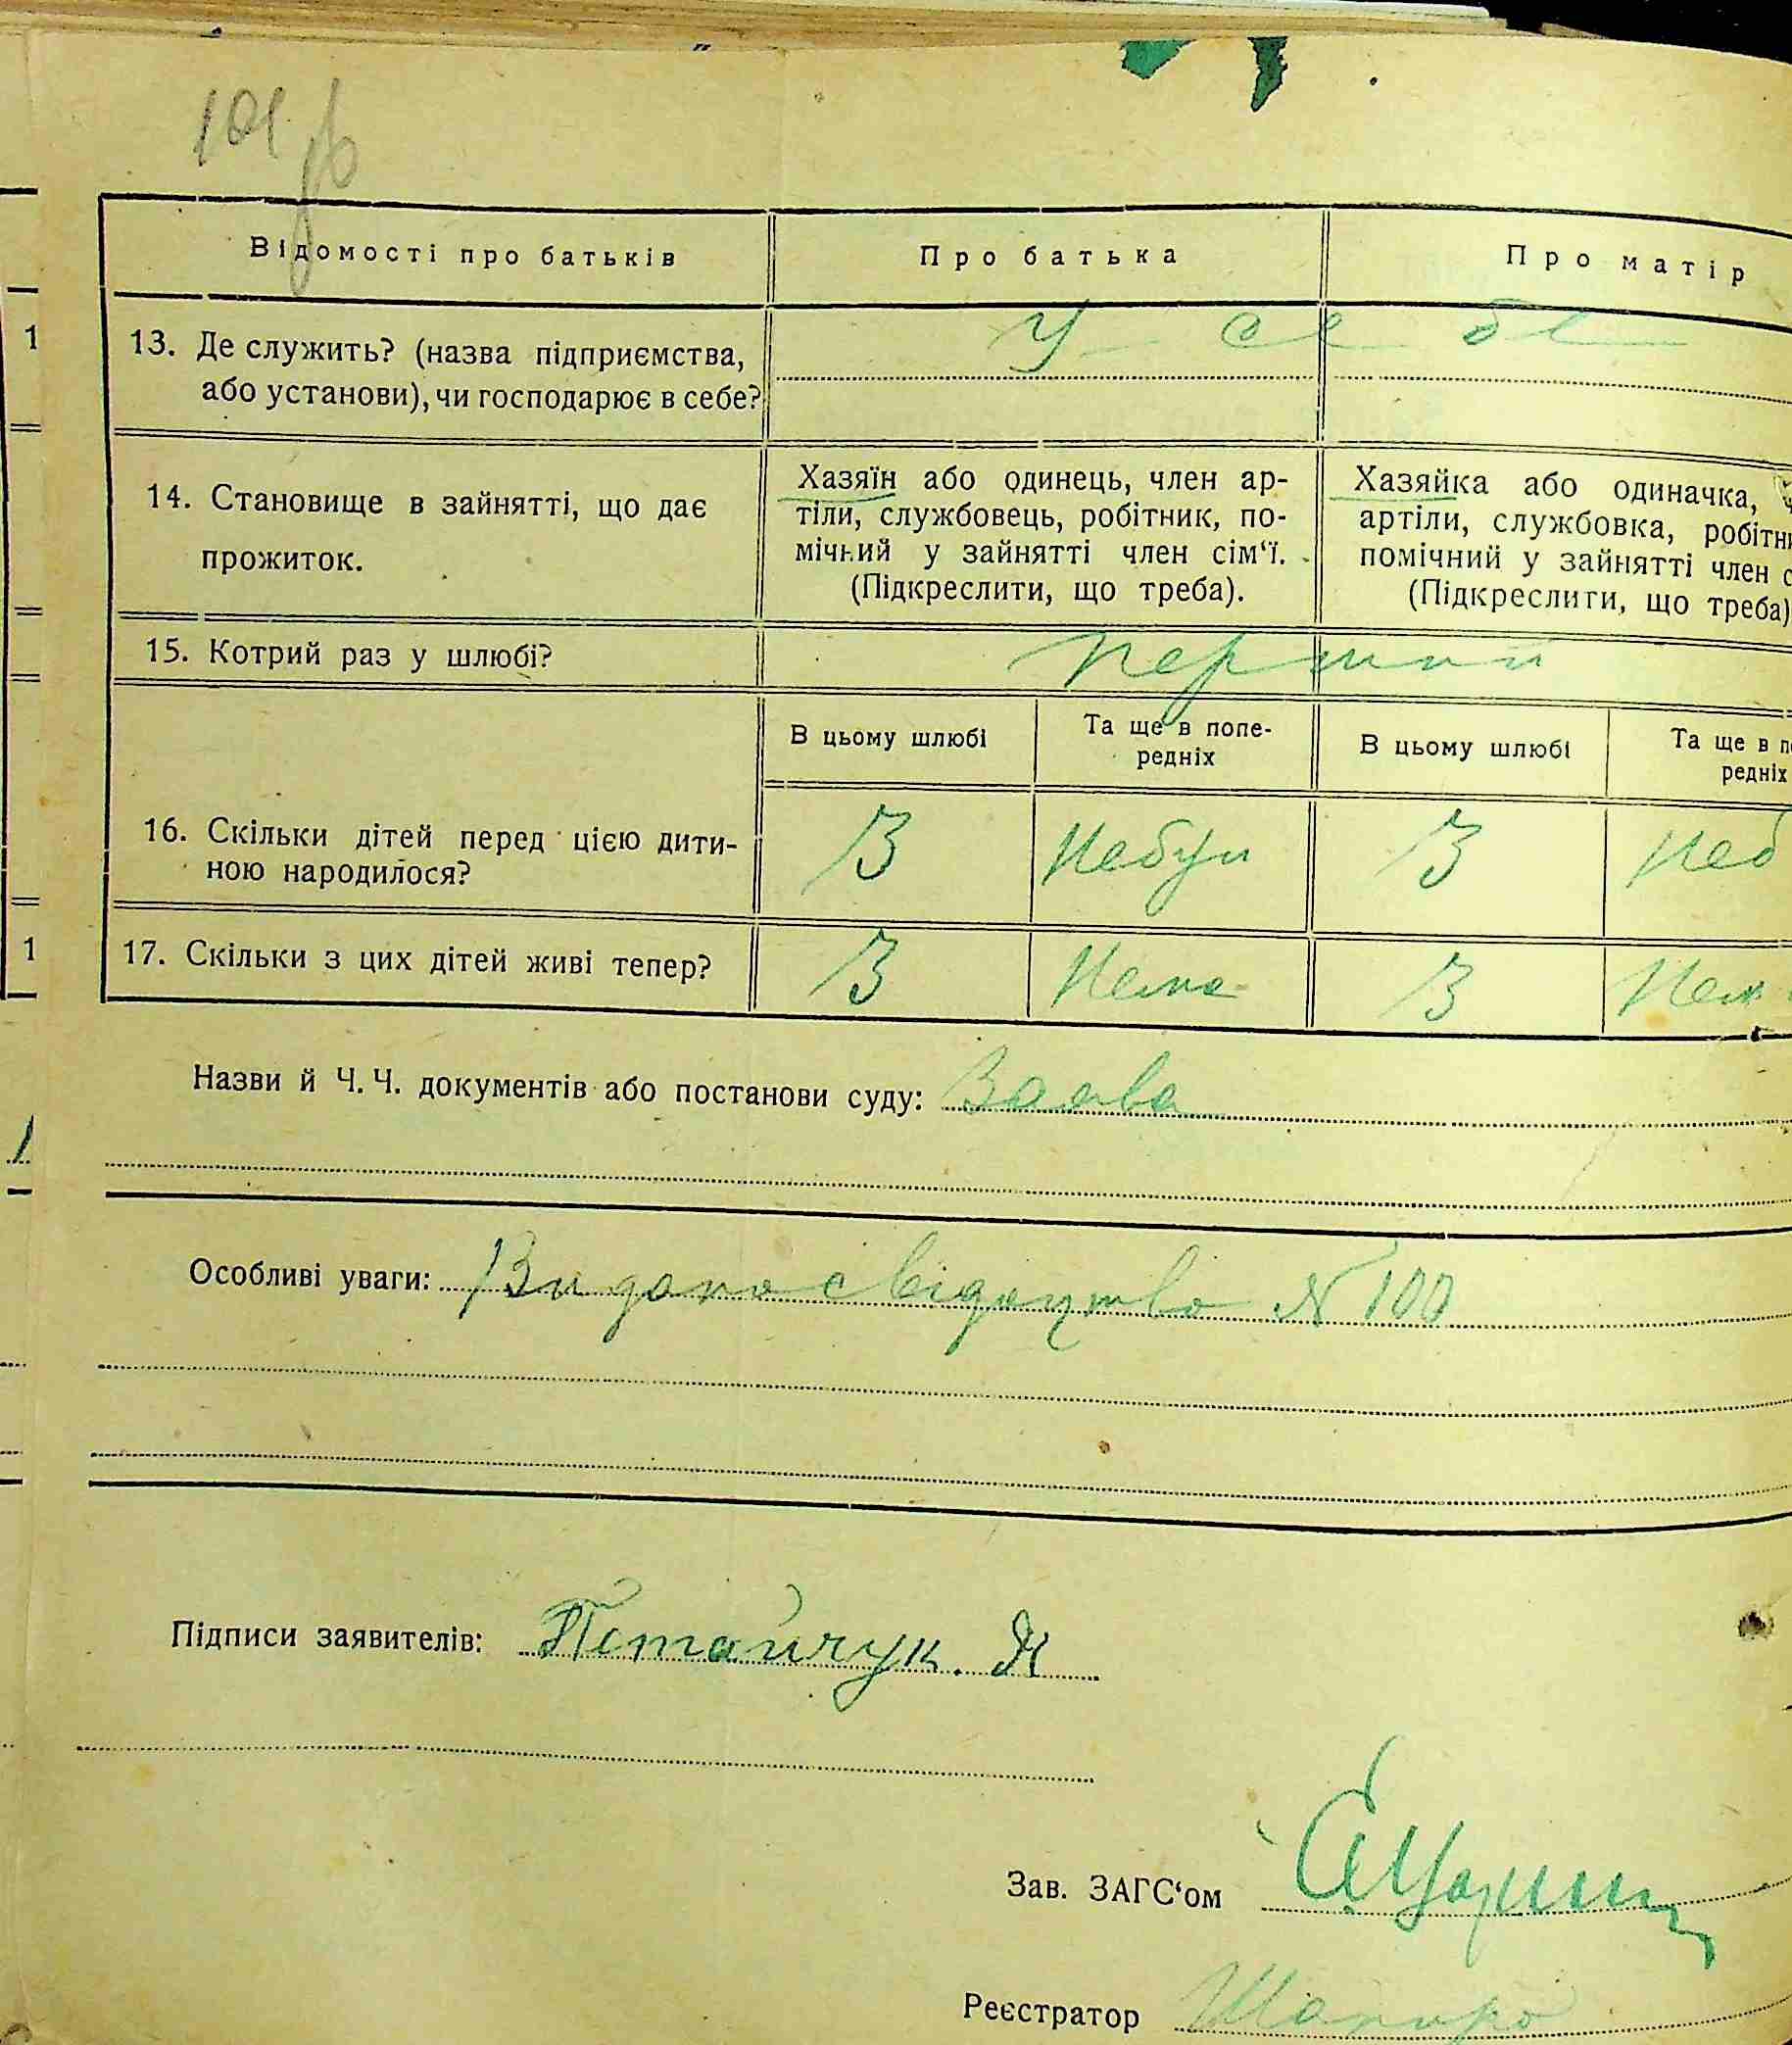 101
Відомості про батьків
Про батька
Про матір
1
13. Де служить? (назва підприємства,
або установи), чи господарює в себе?
У себе
14. Становище в зайнятті, що дає
прожиток.
Хазяїн або одинець, член ар-
тіли, службовець, робітник, по-
мічний у зайнятті член сім‘ї.
(Підкреслити, що треба).
Хазяйка або одиначка,
артіли, службовка, робітн
помічний у зайнятті член с
(Підкреслити, що треба)
15. Котрий раз у шлюбі?
перший
В цьому шлюбі
Та ще в попе-
редніх
В цьому шлюбі
Та ще в по
редніх
16. Скільки дітей перед цією дити-
ною народилося?
3
Небул
3
Неб
1
17. Скільки з цих дітей живі тепер?
3
Нема
3
Нем
Назви й Ч. Ч. документів або постанови суду: Заява
Особливі уваги: Видано свідоцтво № 100
Підписи заявителів: Птайчук. Н
Зав. ЗАГС‘ом
Реєстратор Шапиро